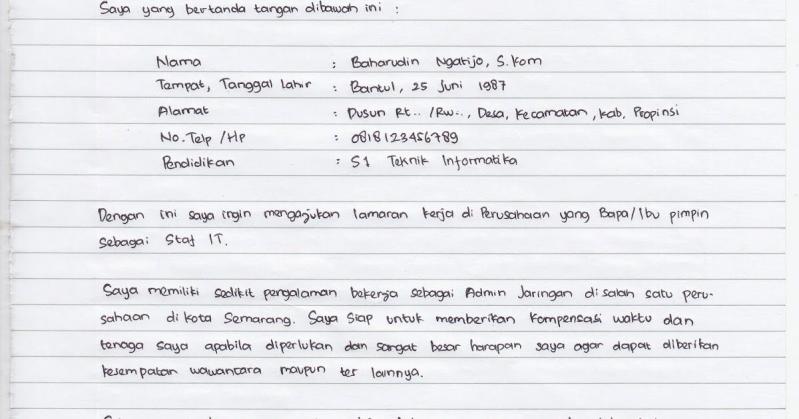 Saya yang bertanda tangan dibawah ini :
Nama : Baharudin Ngatijo, S.Kom
Tempat, Tanggal lahir : Bantul, 25 Juni 1987
Alamat : Dusun Rt.. /Rw.., Desa, Kecamatan, Kab, Propinsi
No.Telp /Hp : 0818123456789
Pendidikan : S1 Teknik Informatika
Dengan ini saya ingin mengajukan lamaran kerja di Perusahaan yang Bapa/Ibu pimpin
sebagai Staf IT.
Saya memiliki sedikit pengalaman bekerja sebagai Admin Jaringan di salah satu peru-
sahaan di kota Semarang. Saya siap untuk memberikan kompensasi waktu dan
tenaga saya apabila diperlukan dan sangat besar harapan saya agar dapat diberikan
kesempatan wawancara maupun tes lainnya.